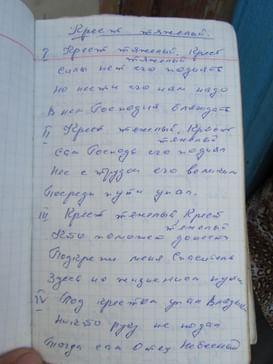 Крест тяжелый.
I Крест тяжелый, Крест
тяжелый
Силы нет его поднять
Но нести его нам надо
В нем Господня благодать
II Крест тежелый, Крест
тяжелый
Сам Господь его поднял
Нес с трудом его великим
Посреди пути упал.
III Крест тяжелый, Крест
тяжелый
Кто поможет донести
Поддержи меня Спаситель
Здесь на жизненном пути
IV Под крестом упал Владыка
Никто руку не подал
Тогда сам Отец Небесный